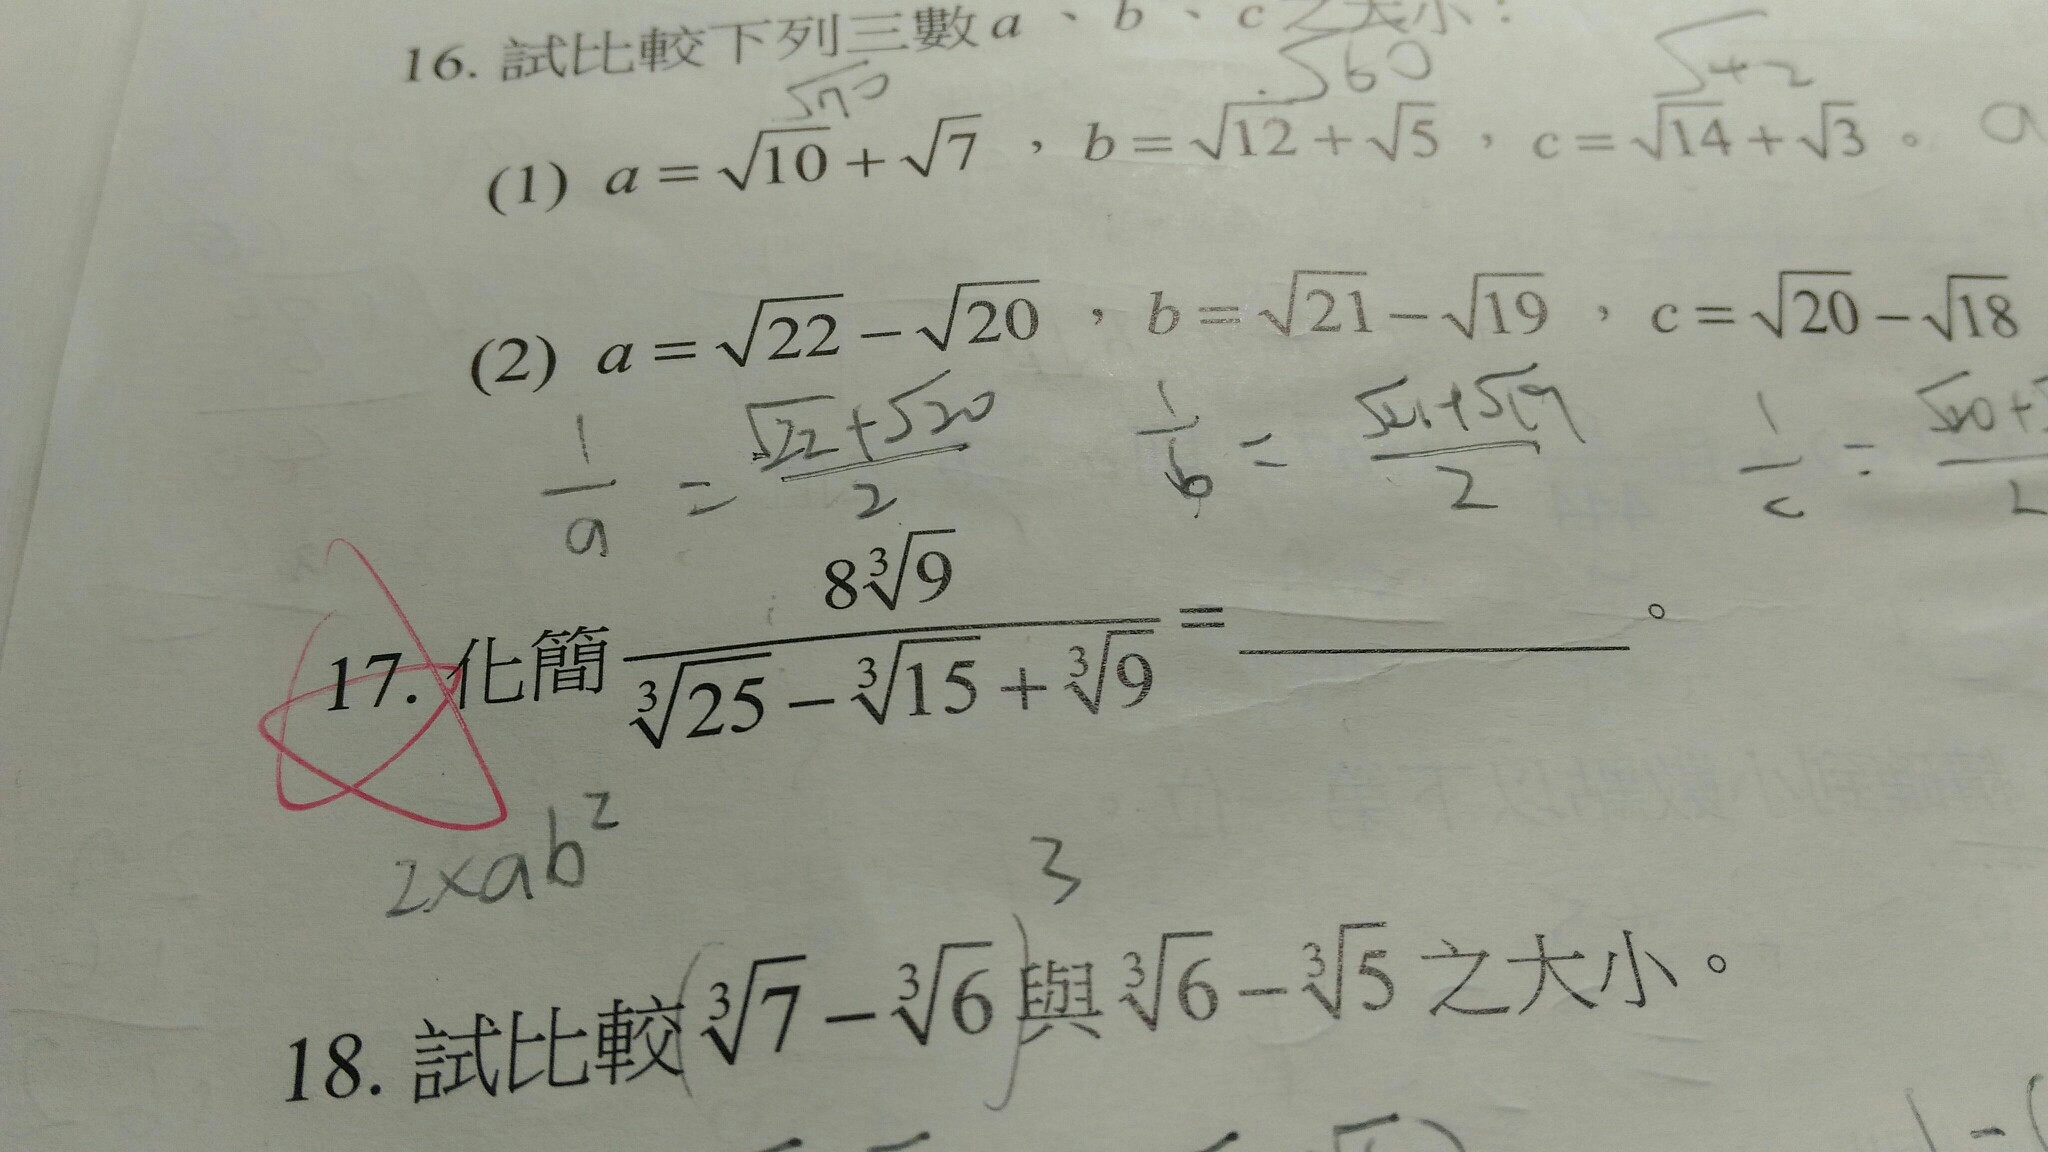 16. 試比較下列三數 a、b、c 之大小：
√70 √60 √42
(1) a = √10 + √7 , b = √12 + √5 , c = √14 + √3 。 a
(2) a = √22 − √20 , b = √21 − √19 , c = √20 − √18
1/a = (√22+√20)/2 1/b = (√21+√19)/2 1/c = √20+
17. 化簡 8∛9/(∛25 − ∛15 + ∛9) = ________ 。
2×ab²
3
18. 試比較(∛7 − ∛6)與 ∛6 − ∛5 之大小。